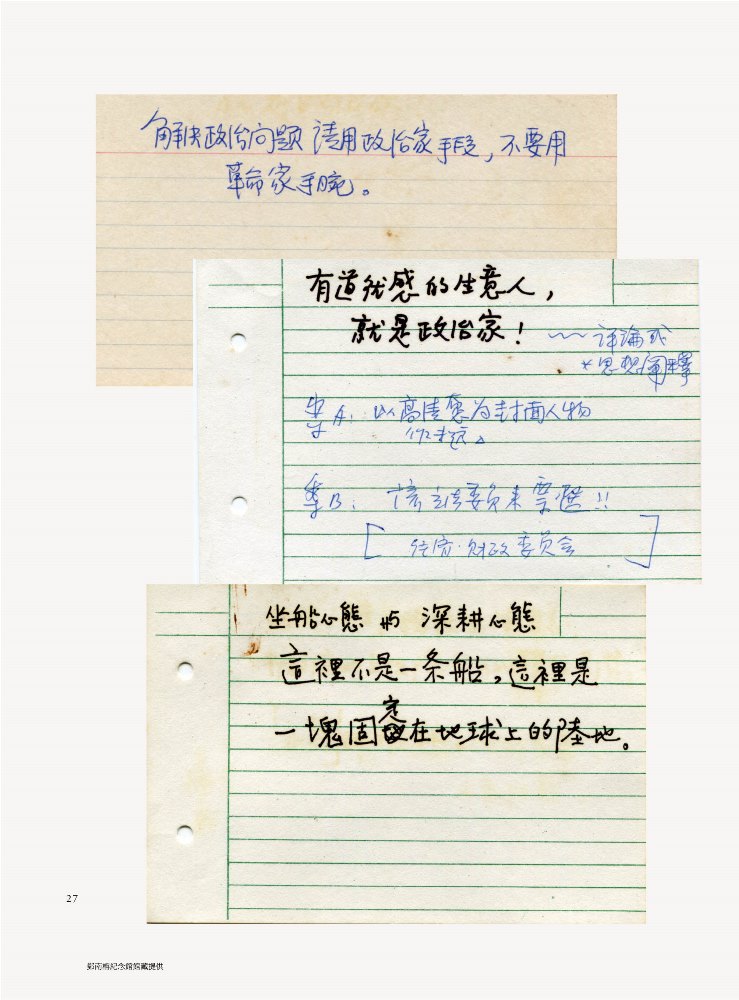 解决政治问题 请用政治家手段，不要用
革命家手腕。
有道德感的生意人，
就是政治家！
评論或
*思想闡釋
案A: 以高清愿为封面人物
作標題。
案B: 該立法委員来票選!!
[經濟·財政委員会]
坐船心態 與 深耕心態
這裡不是一条船，這裡是
一塊固定在地球上的陸地。
27
鄭南榕紀念館館藏提供